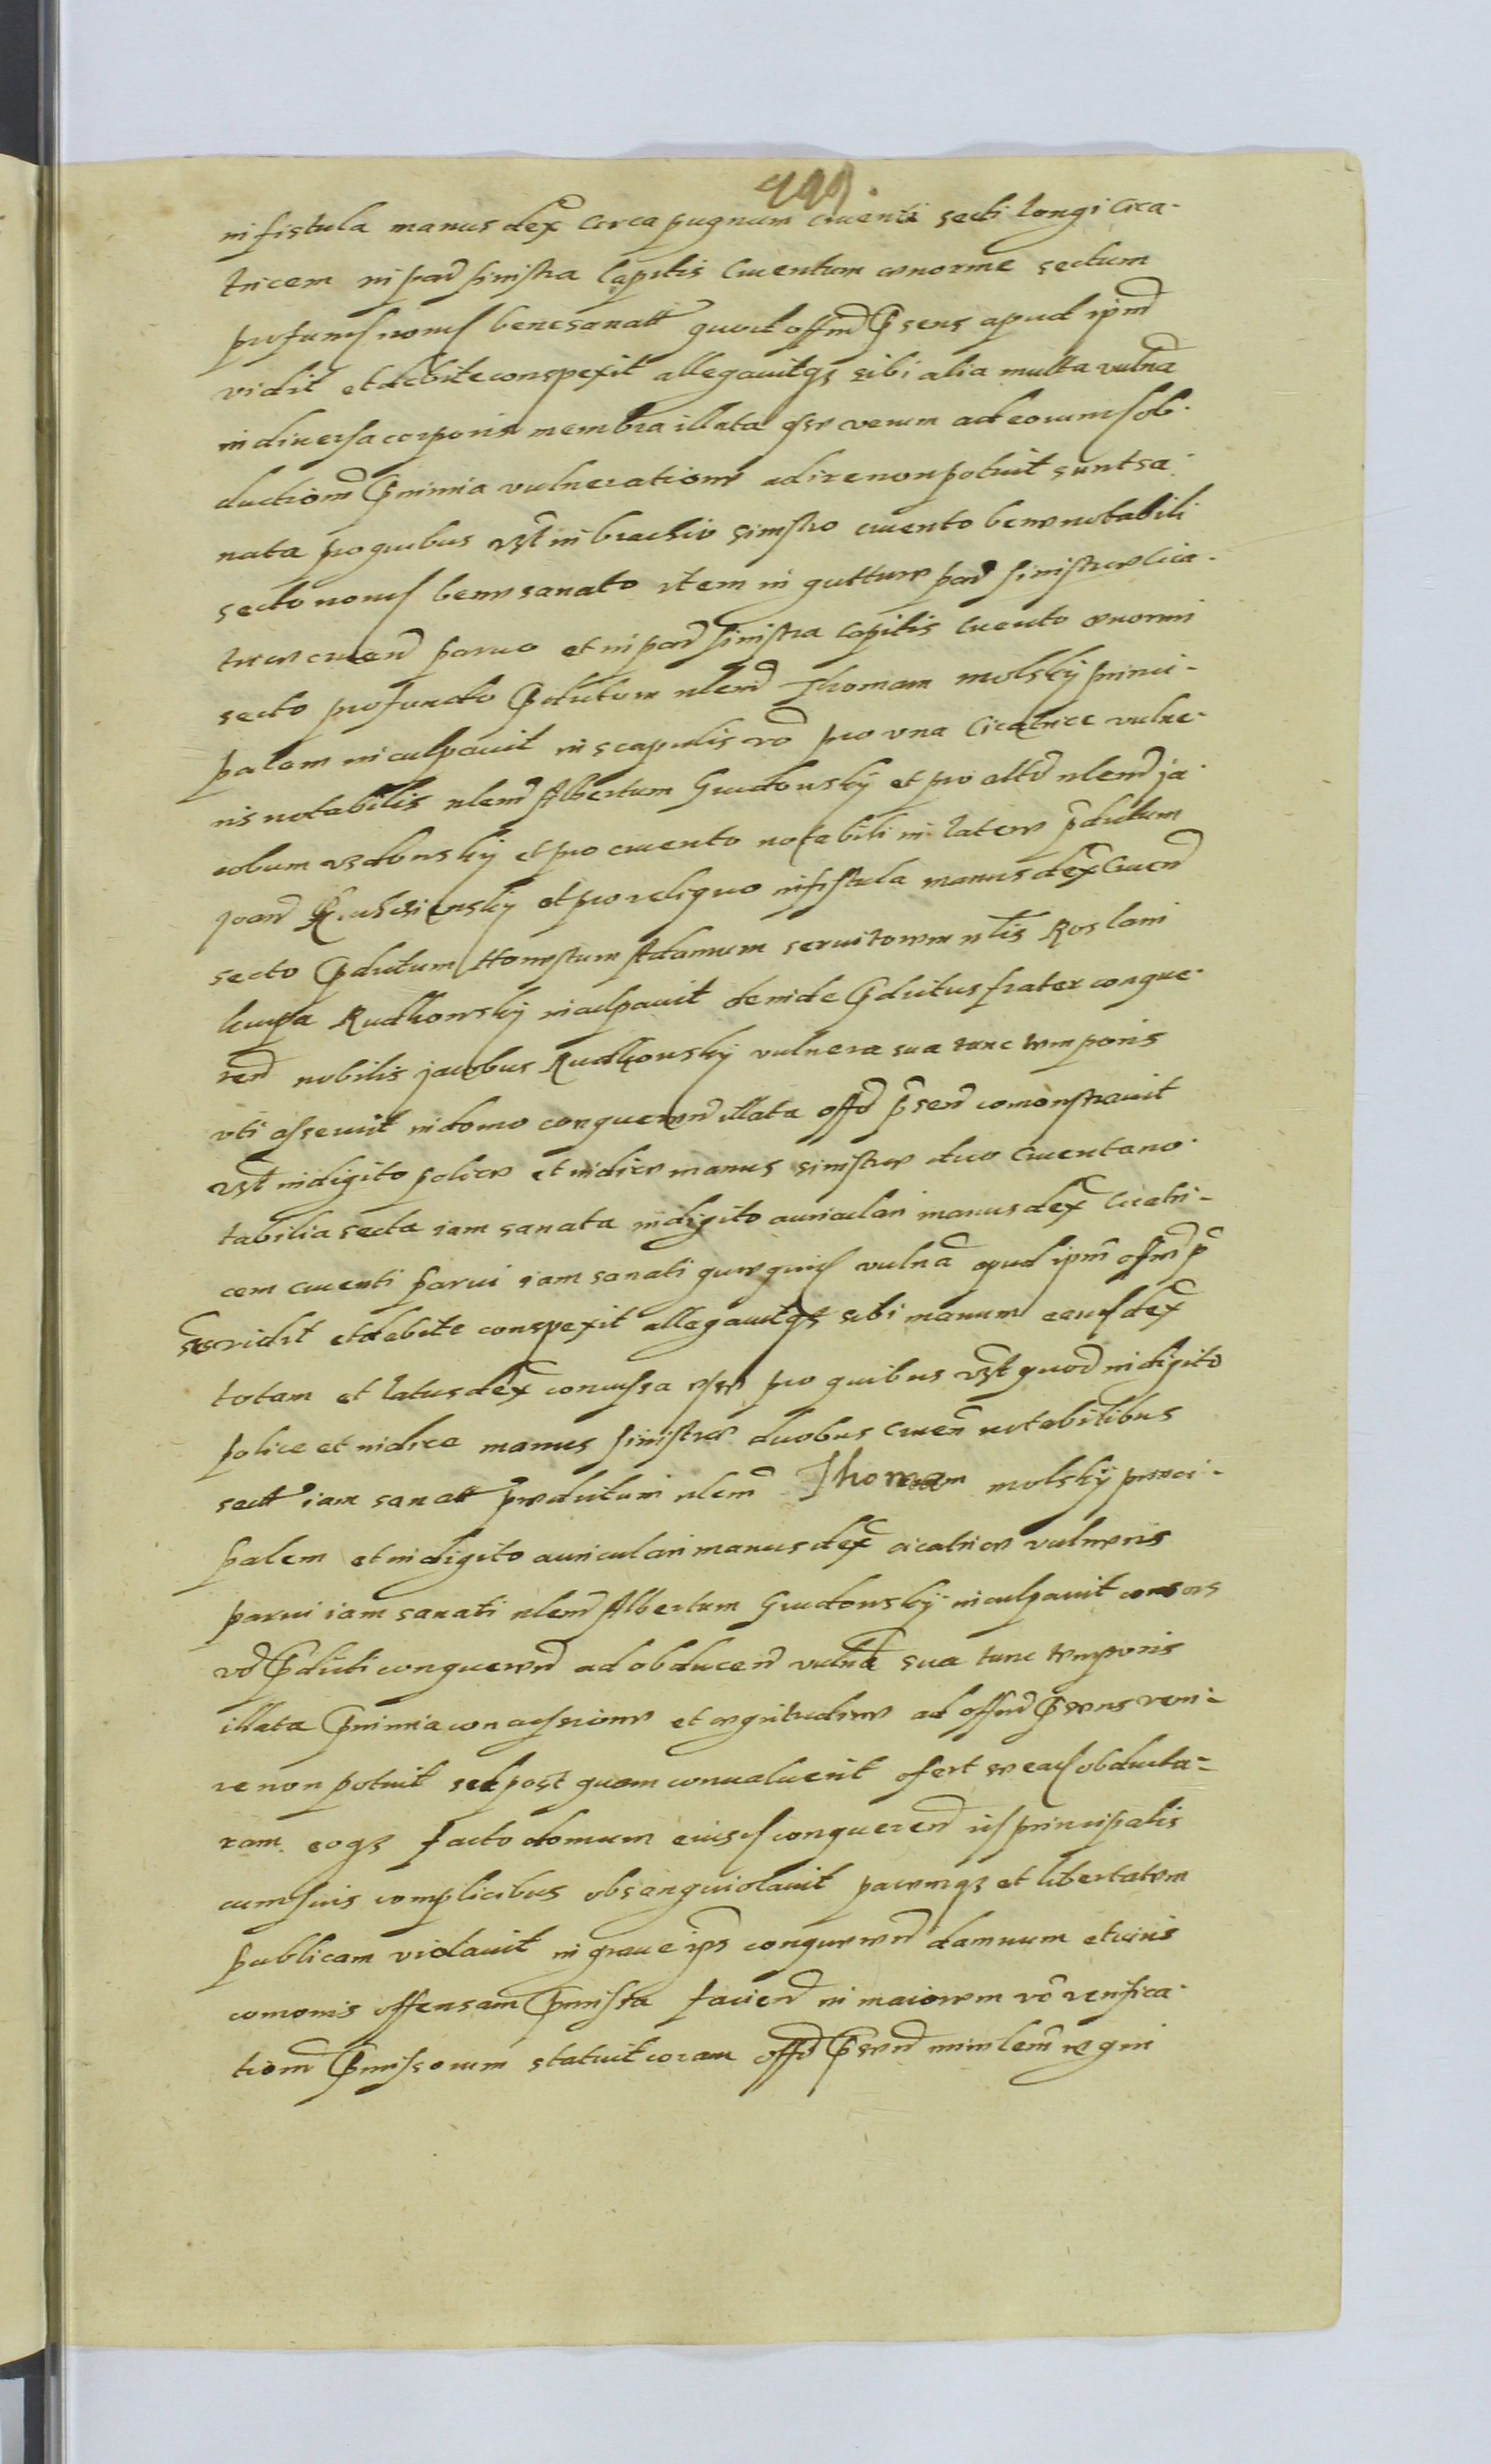 499.
in fistula manus dex circa pugnum cruenti secti longi cica-
tricem in par sinistra capitis cruentum enorme sectum
profund nond bene sanatt quod offm psens apud ipm
vidit et debite conspexit allegavitqz sibi alia multa vulna
in diversa corporis membra illata esse verum ad eorund ob-
duction pnimia vulneratione adire non potuit sunt sa-
nata pro quibus vst in brachio sinistro cruento bene notabili
secto nond bene sanato item in gutture par sinistre cica-
trice cruen parvo et in par sinistra capitis cruento enormi
secto profundo pdictum nlem Thomam Molsky princi-
palem inculpavit in scapulis vo pro una cicatrice vulne-
ris notabilis nlem Albertum Grudowsky et pro altr nlem Ja-
cobum Uzdowsky et pro cruento notabili in latere pdictum
Joan et pro reliquo in fistula manus dex cruen
secto pdictum Honestum Adamum servitorem nlis Roslani
Rudkowsky inculpavit deinde pdictus frater conque-
ren nobilis Jacobus Rudkowsky vulnera sua tunc temporis
uti asseruit in domo conqueren illata offo psen comonstravit
vst in digito police et indice manus sinistre duo cruenta no-
tabilia secta iam sanata in digito auriculari manus dex cicatri-
cem cruenti parvi iam sanati que quid vulna apud ipm offm p
sens vidit et debite conspexit allegavitqz sibi manum eand dex
totam et latus dex concussa esse pro quibus vst quod in digito
police et indice manus sinistre duobus cruen notabilibus
sectt iam sanatt predictum nlem Thomam Molsky princi-
palem et in digito auriculari manus dex cicatrice vulneris
parvi iam sanati nlem Albertum Grudowsky inculpavit consors
vo pdicti conqueren ad obducen vulna sua tunc temporis
illata pnimia concussione et egritudine ad offm psens veni-
re non potuit sed post quam convaluerit ofert se ead obducta-
ram eoqz facto domum eiusd conqueren id principalis
cum suis complicibus obsanguiolavit pacemqz et libertatem
publicam violavit in grave ips conqueren damnum et iuris
comonis offensam pmissa facien in maiorem vo verifica-
tion pmissorum statuit coram offo psen minlem regni